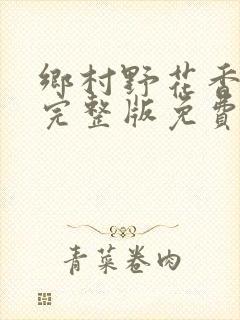 鄉村野花香
完整版免費
青菜卷肉